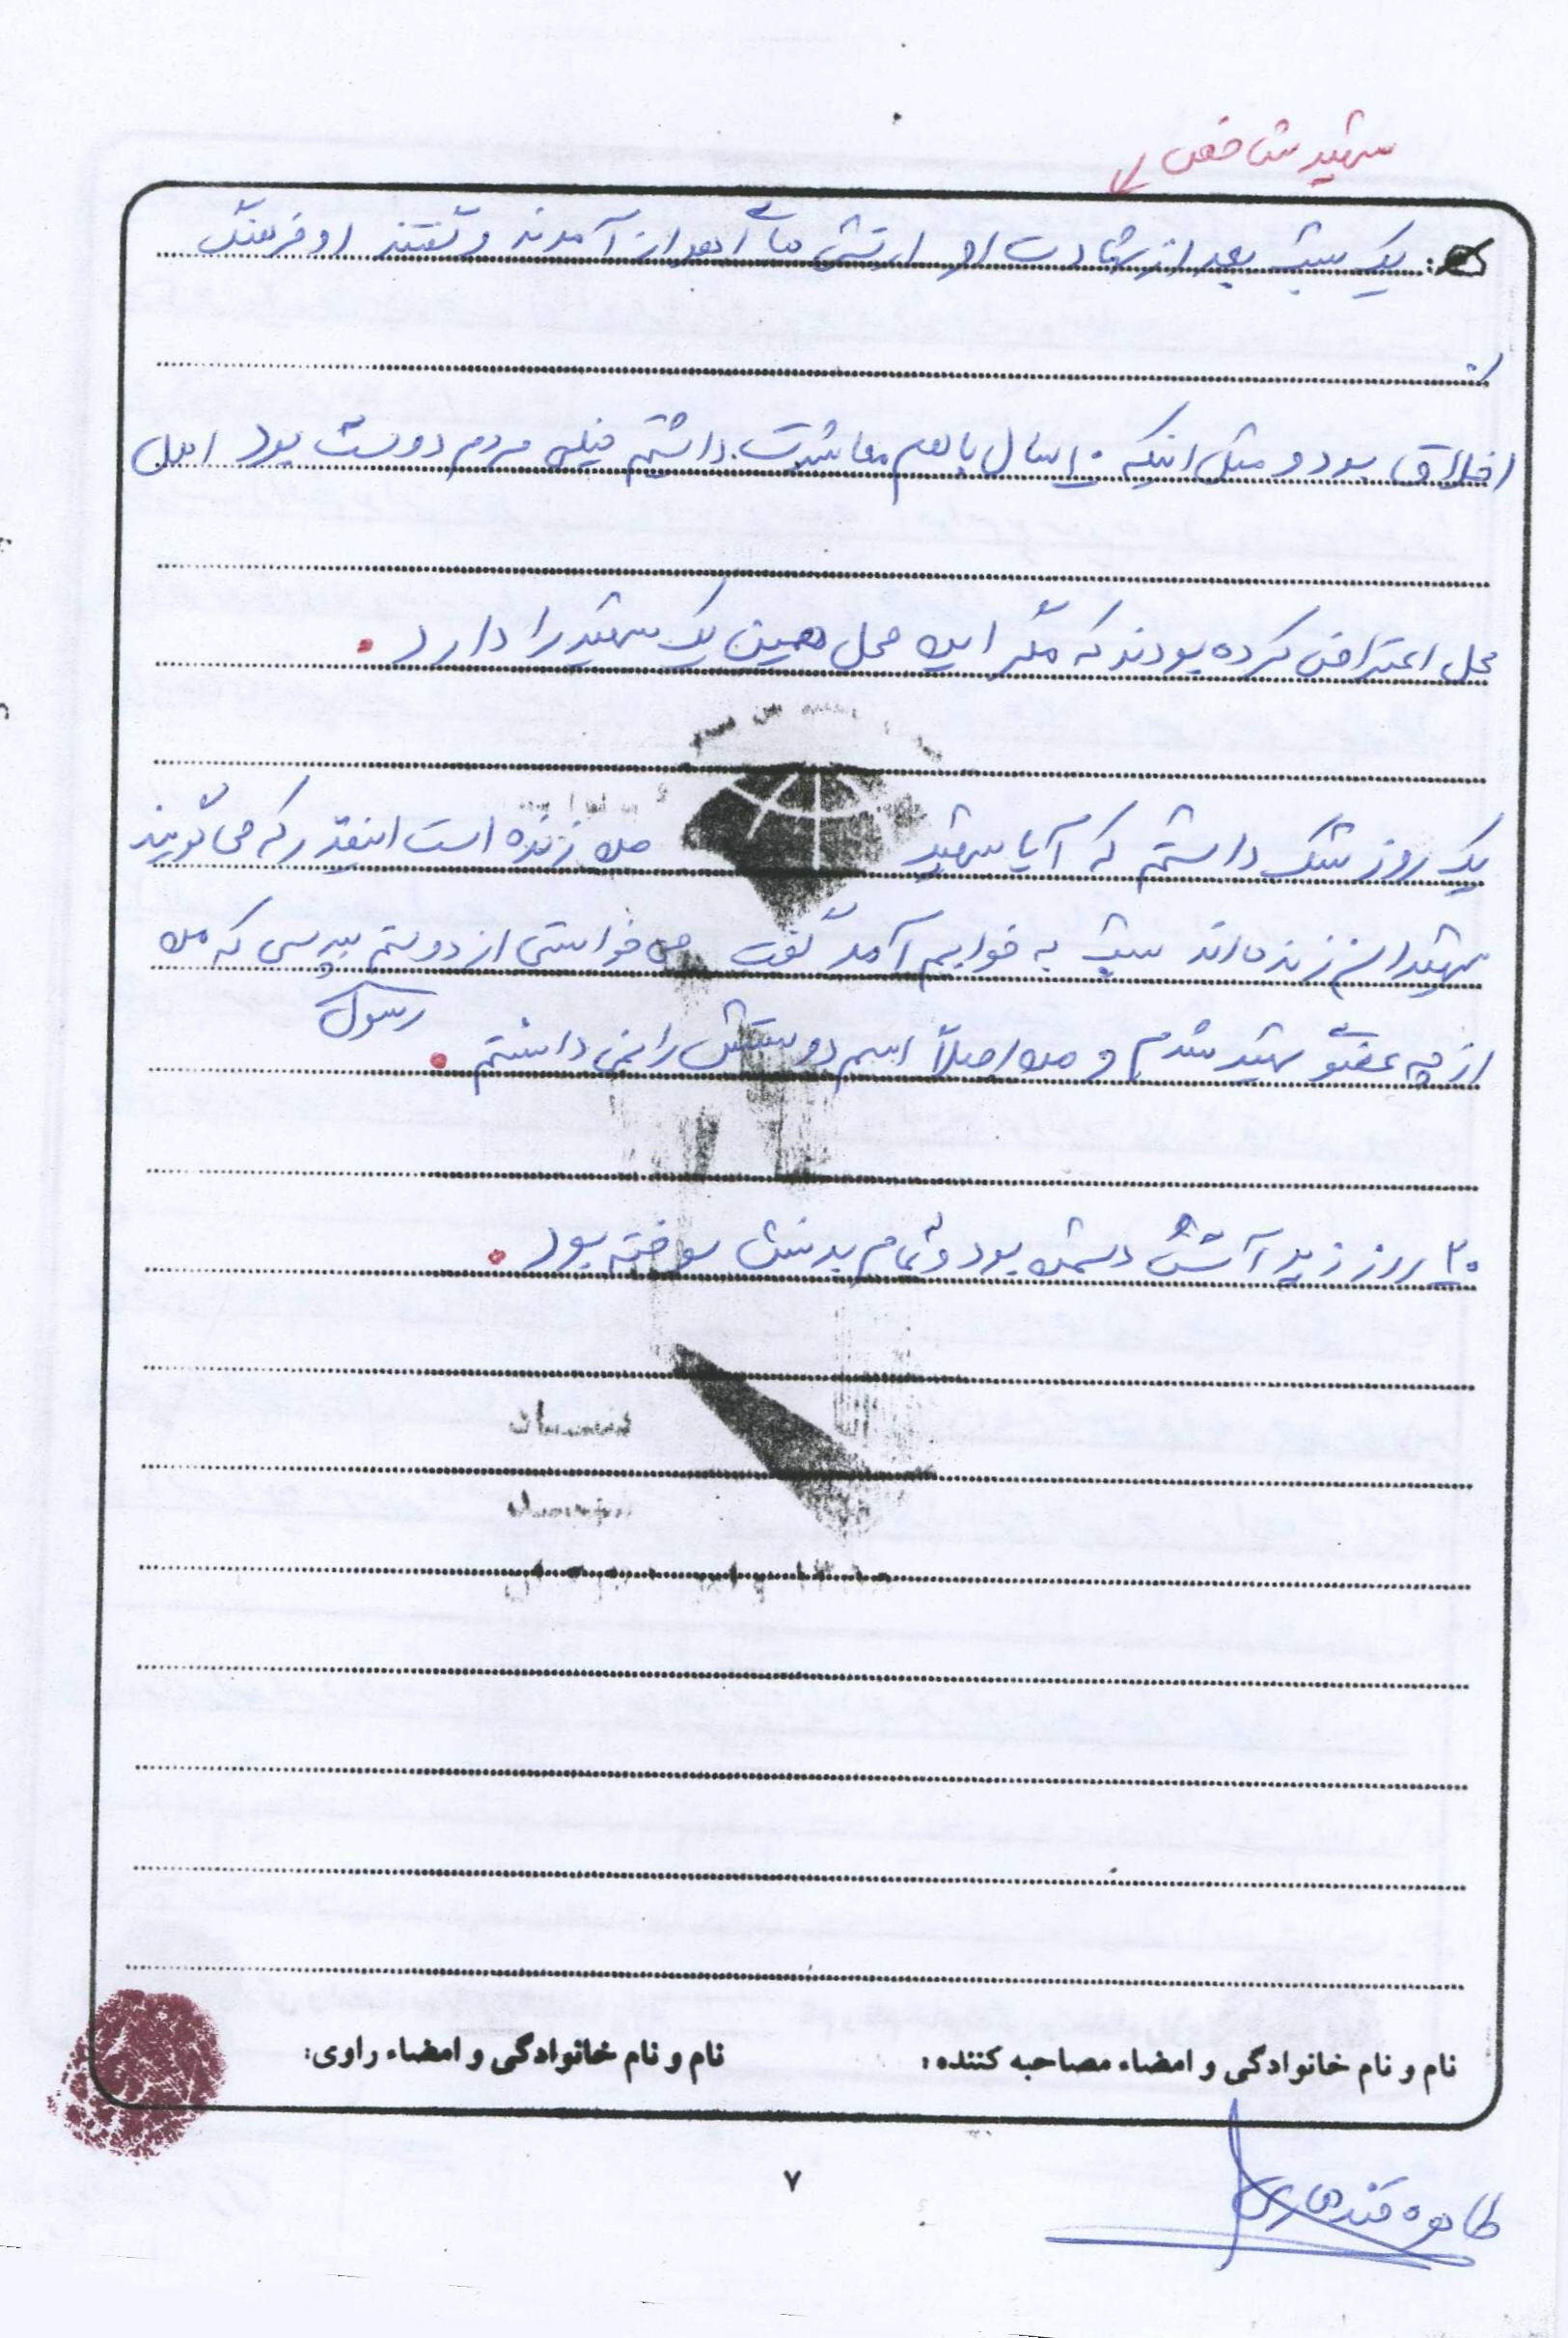 شهید شافعی
یک شب بعد از شهادت او ارتشی های اهواز آمدند و گفتند او فرهنگ
اخلاق بود و مثل اینکه ۱۰ سال با هم معاشرت داشتیم خیلی مردم دوست بود اهل
محل اعتراض کرده بودند که مگر این محل همین یک شهید را دارد.
یک روز شک داشتم که آیا شهید من زنده است اینقدر که می گویند
شهیدان زنده اند شب به خوابم آمد گفت می خواستی از دوستم بپرسی که من
رسول
از چه عضو شهید شدم و من اصلاً اسم دوستش را نمی دانستم.
۲۰ روز زیر آتش دشمن بود و تمام بدنش سوخته بود.
نام و نام خانوادگی و امضاء مصاحبه کننده: نام و نام خانوادگی و امضاء راوی:
۷
طاهره قندهاری